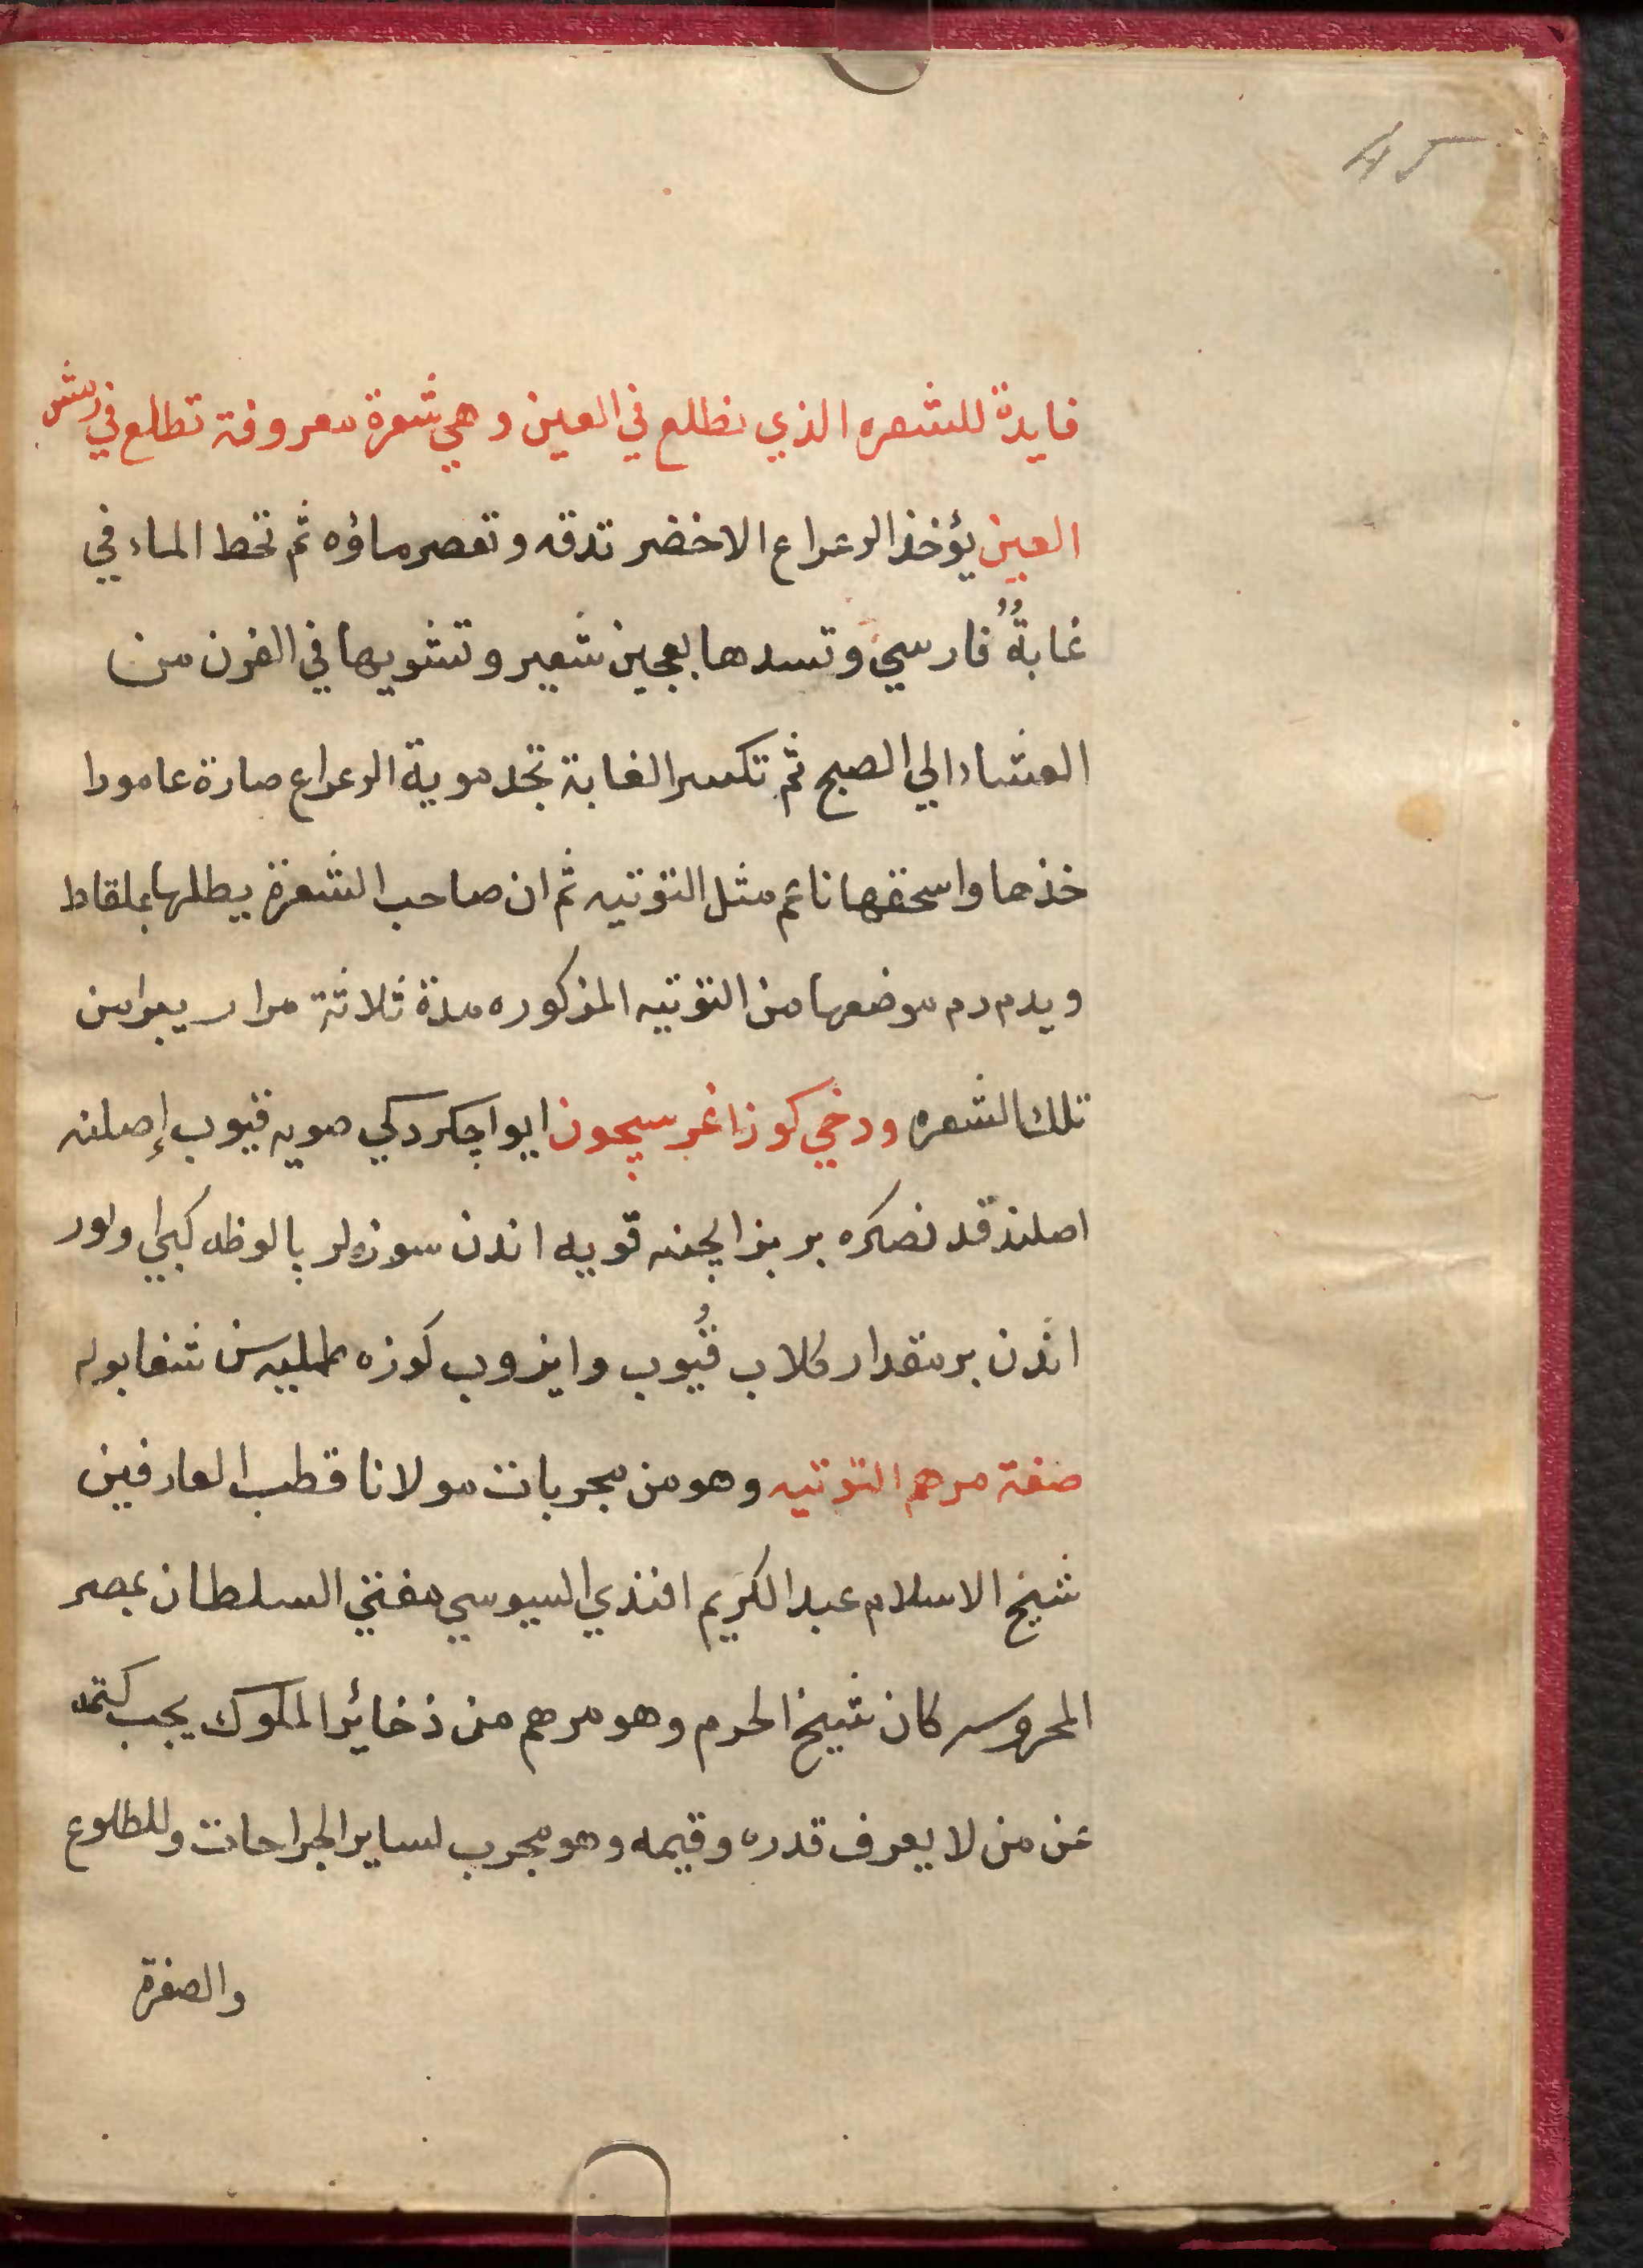 45
فايدة للشعره الذي نطلع في العين وهي شعرة معروفة تطلع في رمش
العين يؤخذ الرعراع الاخضر تدقه وتعصر ماؤه ثم تحط الماء في
غابةٌ فارسي وتسدها بعجين شعير وتشويها في الفرن من
العشاء الي الصبح ثم تكسر الغابة تجد موية الرعراع صارة عامودا
خذها واسحقها ناعم مثل التوتيه ثم ان صاحب الشعرة يطلها بملقاط
ويدم دم موضعها من التوتيه المذكوره مدة ثلاثة مرار يبرا من
تلك الشعره ودخي كوز اغريسيچون ايوا چكردكي صويه قيوب إصلنه
اصلندقدنصكره بر بز ايچنه قويه اندن سوزه‌لر پالوظه كبي اولور
اندن بر مقدار كلاب قُيوب وايزوب كوزه طمليه‌سن شفا بوله
صفة مرهم التوتيه وهو من مجربات مولانا قطب العارفين
شيخ الاسلام عبد الكريم افندي السيوسي مفتي السلطان بمصر
المحروسه كان شيخ الحرم وهو مرهم من ذخائر الملوك يجب كتمه
عن من لا يعرف قدره وقيمه وهو مجرب لساير الجراحات وللطلوع
والصفرة